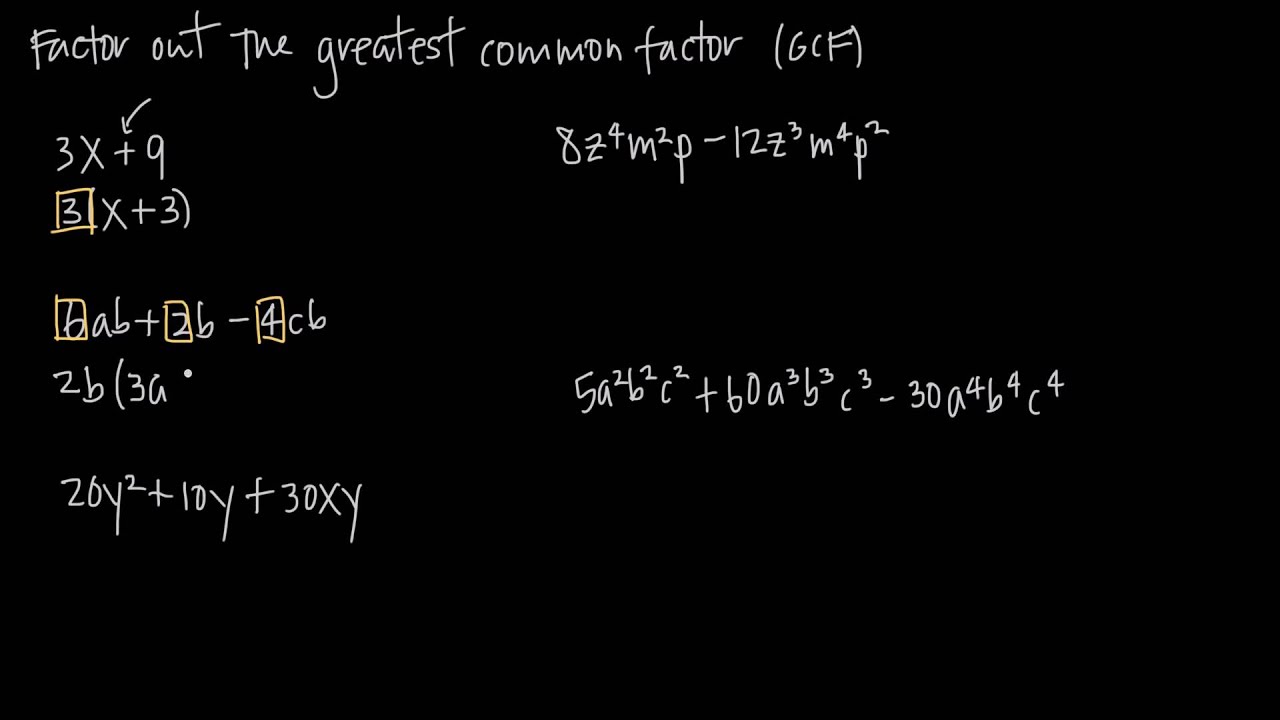 Factor out the greatest common factor (GCF)
3x + 9
3(x + 3)
6ab + 2b - 4cb
2b(3a
20y² + 10y + 30xy
8z⁴m²p - 12z³m⁴p²
5a²b²c² + 60a³b³c³ - 30a⁴b⁴c⁴